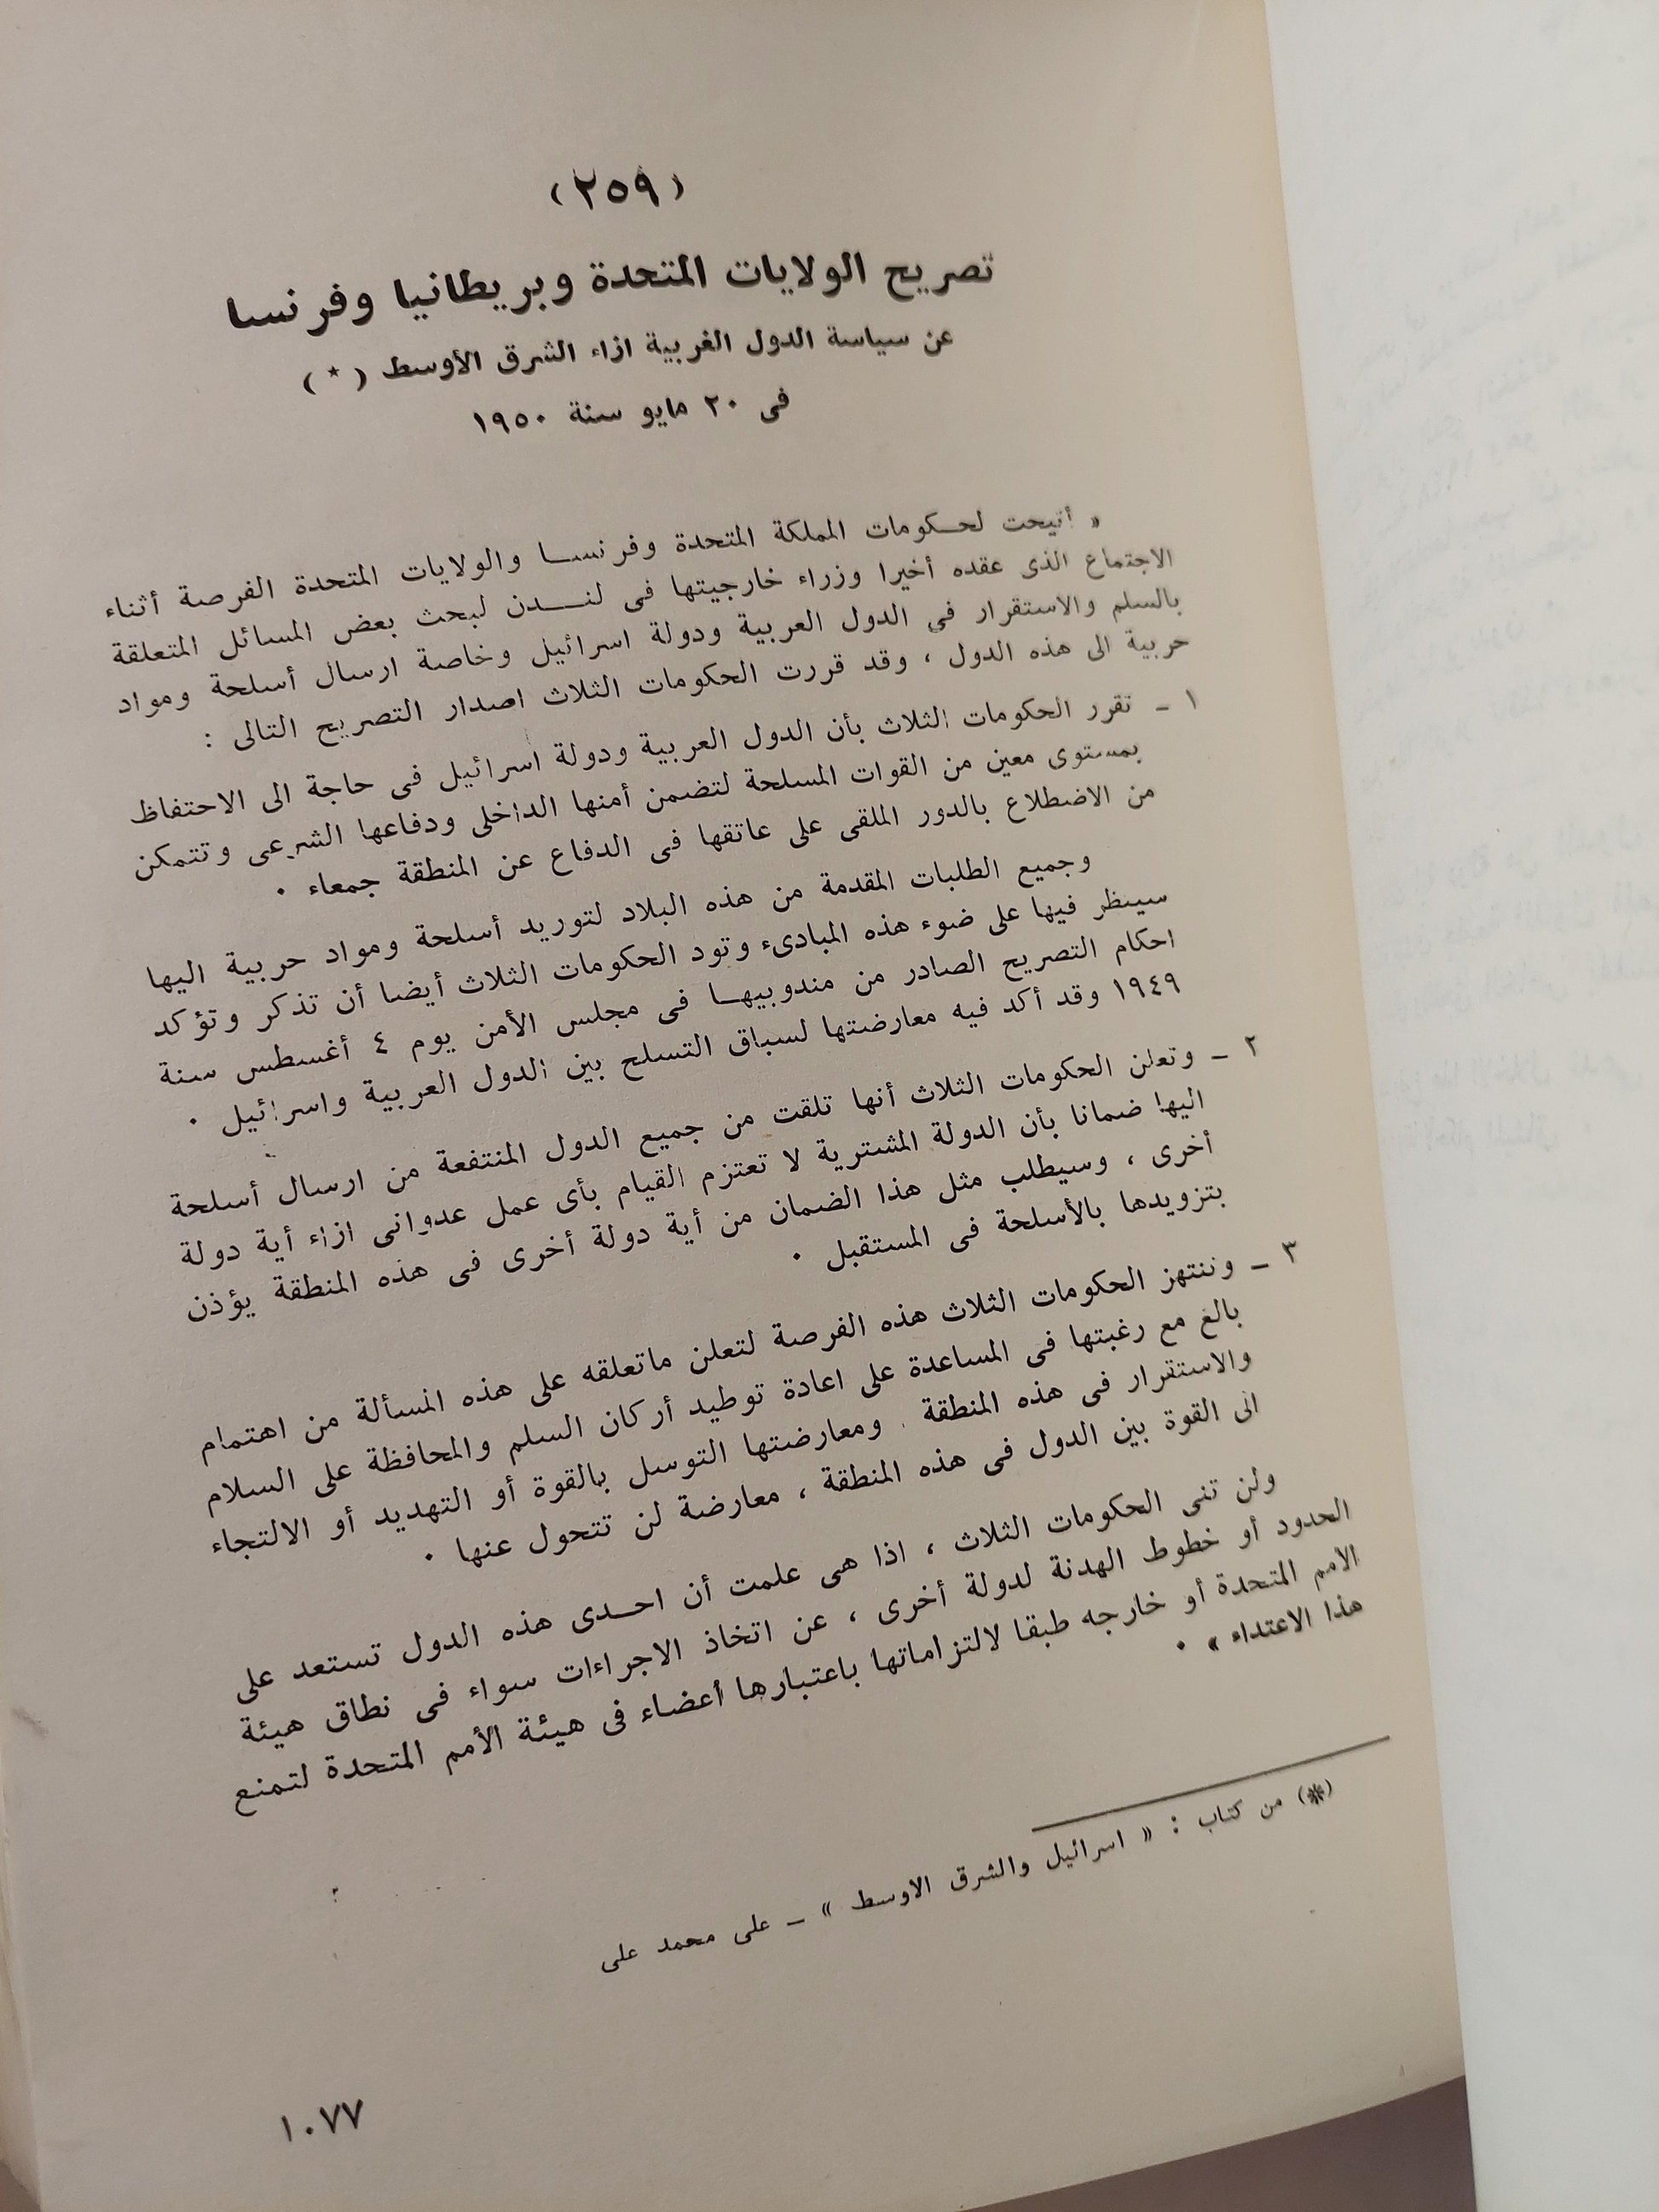 (٢٥٩)
تصريح الولايات المتحدة وبريطانيا وفرنسا
عن سياسة الدول الغربية ازاء الشرق الأوسط (*)
فى ٢٠ مايو سنة ١٩٥٠
« أتيحت لحكومات المملكة المتحدة وفرنسا والولايات المتحدة الفرصة أثناء
الاجتماع الذى عقده أخيرا وزراء خارجيتها فى لندن لبحث بعض المسائل المتعلقة
بالسلم والاستقرار فى الدول العربية ودولة اسرائيل وخاصة ارسال أسلحة ومواد
حربية الى هذه الدول ، وقد قررت الحكومات الثلاث اصدار التصريح التالى :
١ ـ تقرر الحكومات الثلاث بأن الدول العربية ودولة اسرائيل فى حاجة الى الاحتفاظ
بمستوى معين من القوات المسلحة لتضمن أمنها الداخلى ودفاعها الشرعى وتتمكن
من الاضطلاع بالدور الملقى على عاتقها فى الدفاع عن المنطقة جمعاء ٠
وجميع الطلبات المقدمة من هذه البلاد لتوريد أسلحة ومواد حربية اليها
سينظر فيها على ضوء هذه المبادىء وتود الحكومات الثلاث أيضا أن تذكر وتؤكد
احكام التصريح الصادر من مندوبيها فى مجلس الأمن يوم ٤ أغسطس سنة
١٩٤٩ وقد أكد فيه معارضتها لسباق التسلح بين الدول العربية واسرائيل ٠
٢ ـ وتعلن الحكومات الثلاث أنها تلقت من جميع الدول المنتفعة من ارسال أسلحة
اليها ضمانا بأن الدولة المشترية لا تعتزم القيام بأى عمل عدوانى ازاء أية دولة
أخرى ، وسيطلب مثل هذا الضمان من أية دولة أخرى فى هذه المنطقة يؤذن
بتزويدها بالأسلحة فى المستقبل ٠
٣ ـ وننتهز الحكومات الثلاث هذه الفرصة لتعلن ماتعلقه على هذه المسألة من اهتمام
بالغ مع رغبتها فى المساعدة على اعادة توطيد أركان السلم والمحافظة على السلام
والاستقرار فى هذه المنطقة ومعارضتها التوسل بالقوة أو التهديد أو الالتجاء
الى القوة بين الدول فى هذه المنطقة ، معارضة لن تتحول عنها ٠
ولن تنى الحكومات الثلاث ، اذا هى علمت أن احدى هذه الدول تستعد على
الحدود أو خطوط الهدنة لدولة أخرى ، عن اتخاذ الاجراءات سواء فى نطاق هيئة
الامم المتحدة أو خارجه طبقا لالتزاماتها باعتبارها أعضاء فى هيئة الأمم المتحدة لتمنع
هذا الاعتداء » ٠
(*) من كتاب : « اسرائيل والشرق الاوسط » ـ على محمد على
١٠٧٧